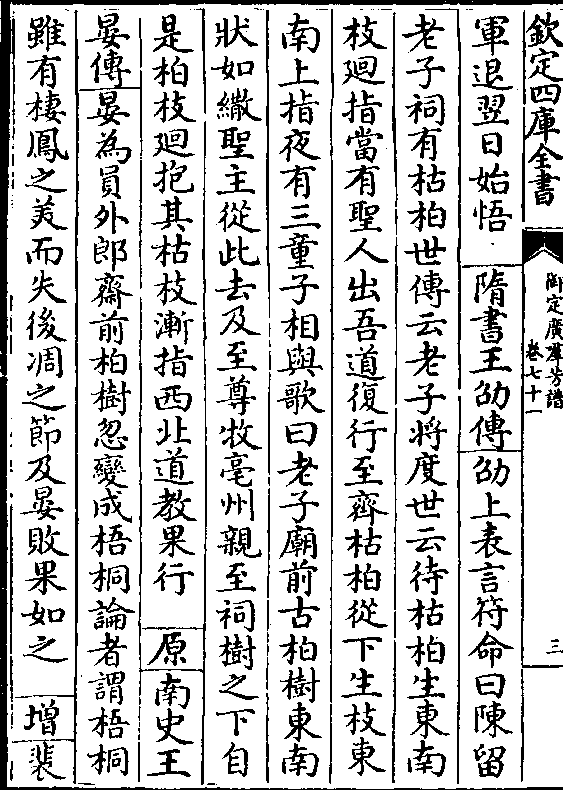 欽定四庫全書
御定廣羣芳譜
卷七十一
三
軍退翌日始悟　隋書王劭傳劭上表言符命曰陳留
老子祠有枯柏世傳云老子將度世云待枯柏生東南
枝廻指當有聖人出吾道復行至齊枯柏從下生枝東
南上指夜有三童子相與歌曰老子廟前古柏樹東南
狀如繖聖主從此去及至尊牧亳州親至祠樹之下自
是柏枝廻抱其枯枝漸指西北道教果行　原南史王
晏傳晏為員外郎齋前柏樹忽變成梧桐論者謂梧桐
雖有棲鳳之美而失後凋之節及晏敗果如之　增裴